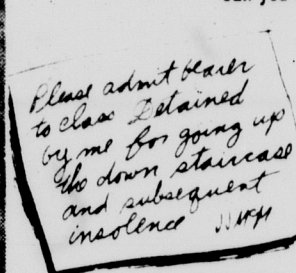 Please admit bearer
to class Detained
by me for going up
the down staircase
and subsequent
insolence